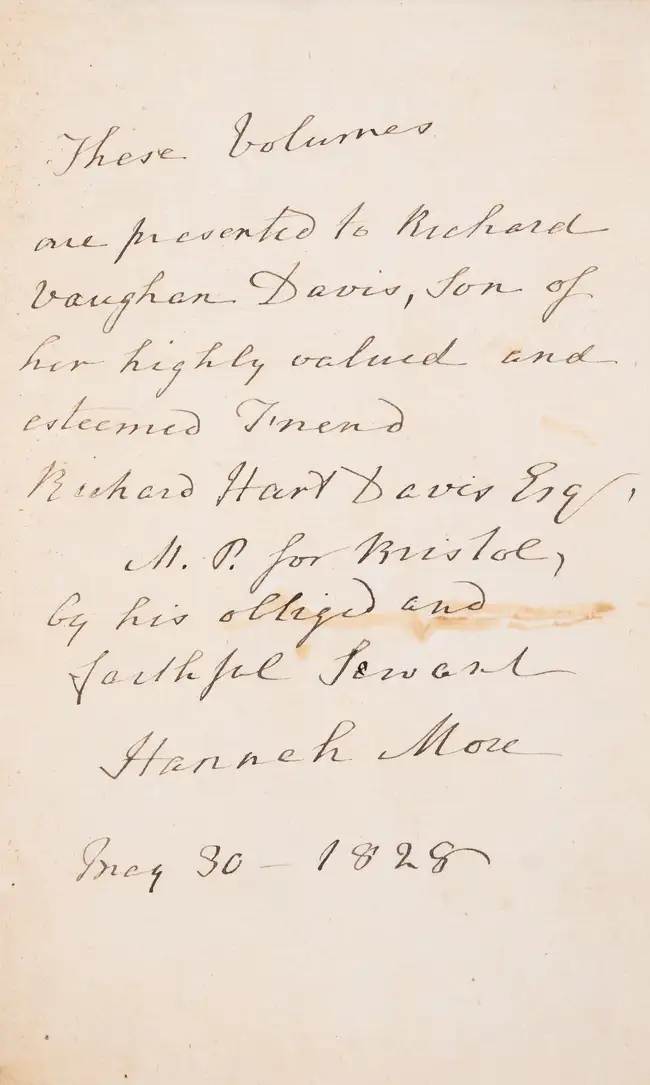 These Volumes
are presented to Richard
Vaughan Davis, Son of
her highly valued and
esteemed Friend
Richard Hart Davis Esqr,
M. P. for Bristol,
by his obliged and
faithful Servant
Hannah More
May 30 – 1828